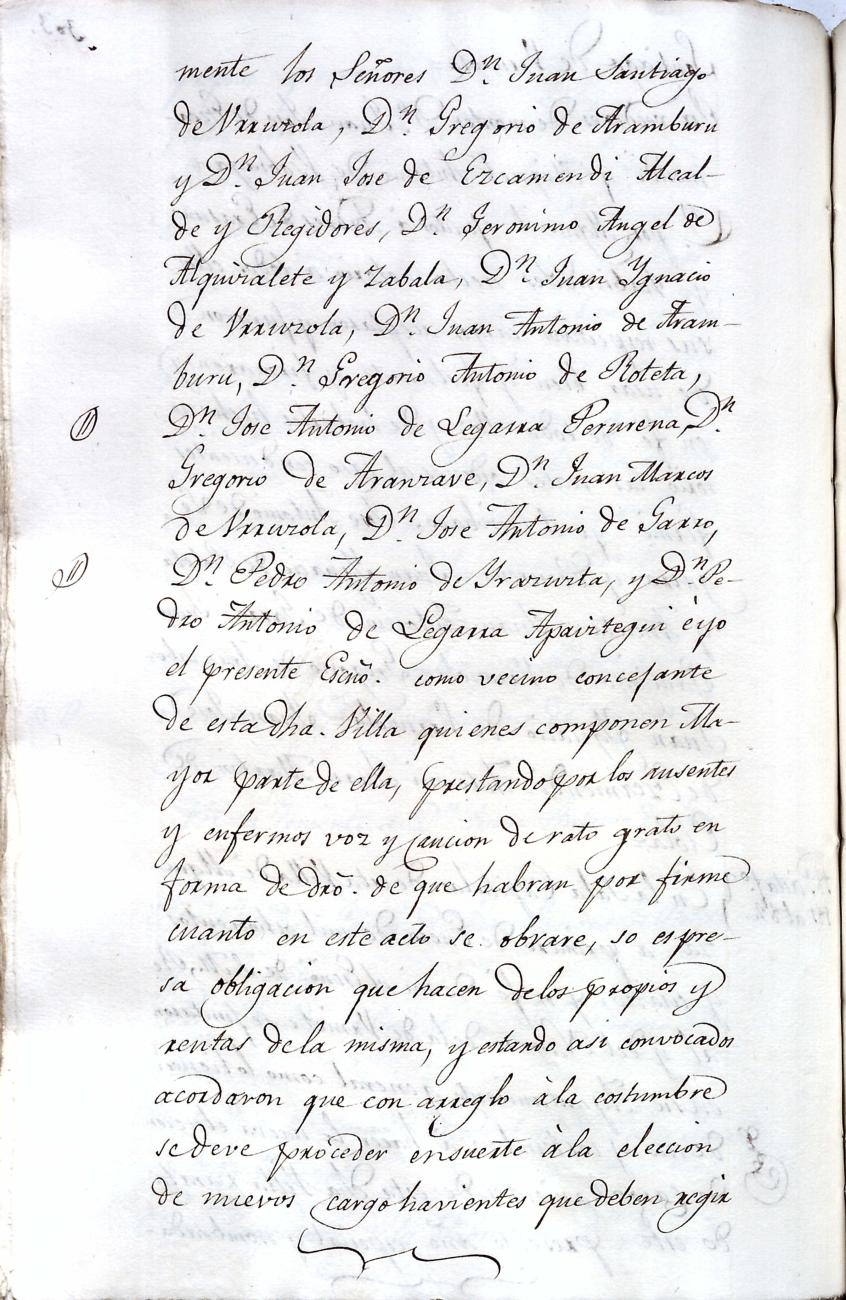 mente los Señores Dn. Juan Santiago
de Vrruzola, Dn. Gregorio de Aramburu
y Dn. Juan Jose de Ezcamendi Alcal-
de y Regidores, Dn. Jeronimo Angel de
Alquizalete y Zabala, Dn. Juan Ygnacio
de Vrruzola, Dn. Juan Antonio de Aram-
buru, Dn. Gregorio Antonio de Roteta,
Dn. Jose Antonio de Legarra Perurena, Dn.
Gregorio de Aranzave, Dn. Juan Marcos
de Vrruzola, Dn. Jose Antonio de Garro,
Dn. Pedro Antonio de Yrazuzta, y Dn. Pe-
dro Antonio de Legarra Apairtegui è yo
el presente Escño. como vecino concejante
de esta dha. Villa quienes componen Ma-
yor parte de ella, prestando por los ausentes
y enfermos voz y caucion de rato grato en
forma de drõ. de que habran por firme
cuanto en este acto se obrare, so espre-
sa obligacion que hacen de los propios y
rentas de la misma, y estando asi convocados
acordaron que con arreglo à la costumbre
se deve proceder en suerte à la eleccion
de nuevos cargohavientes que deben regir